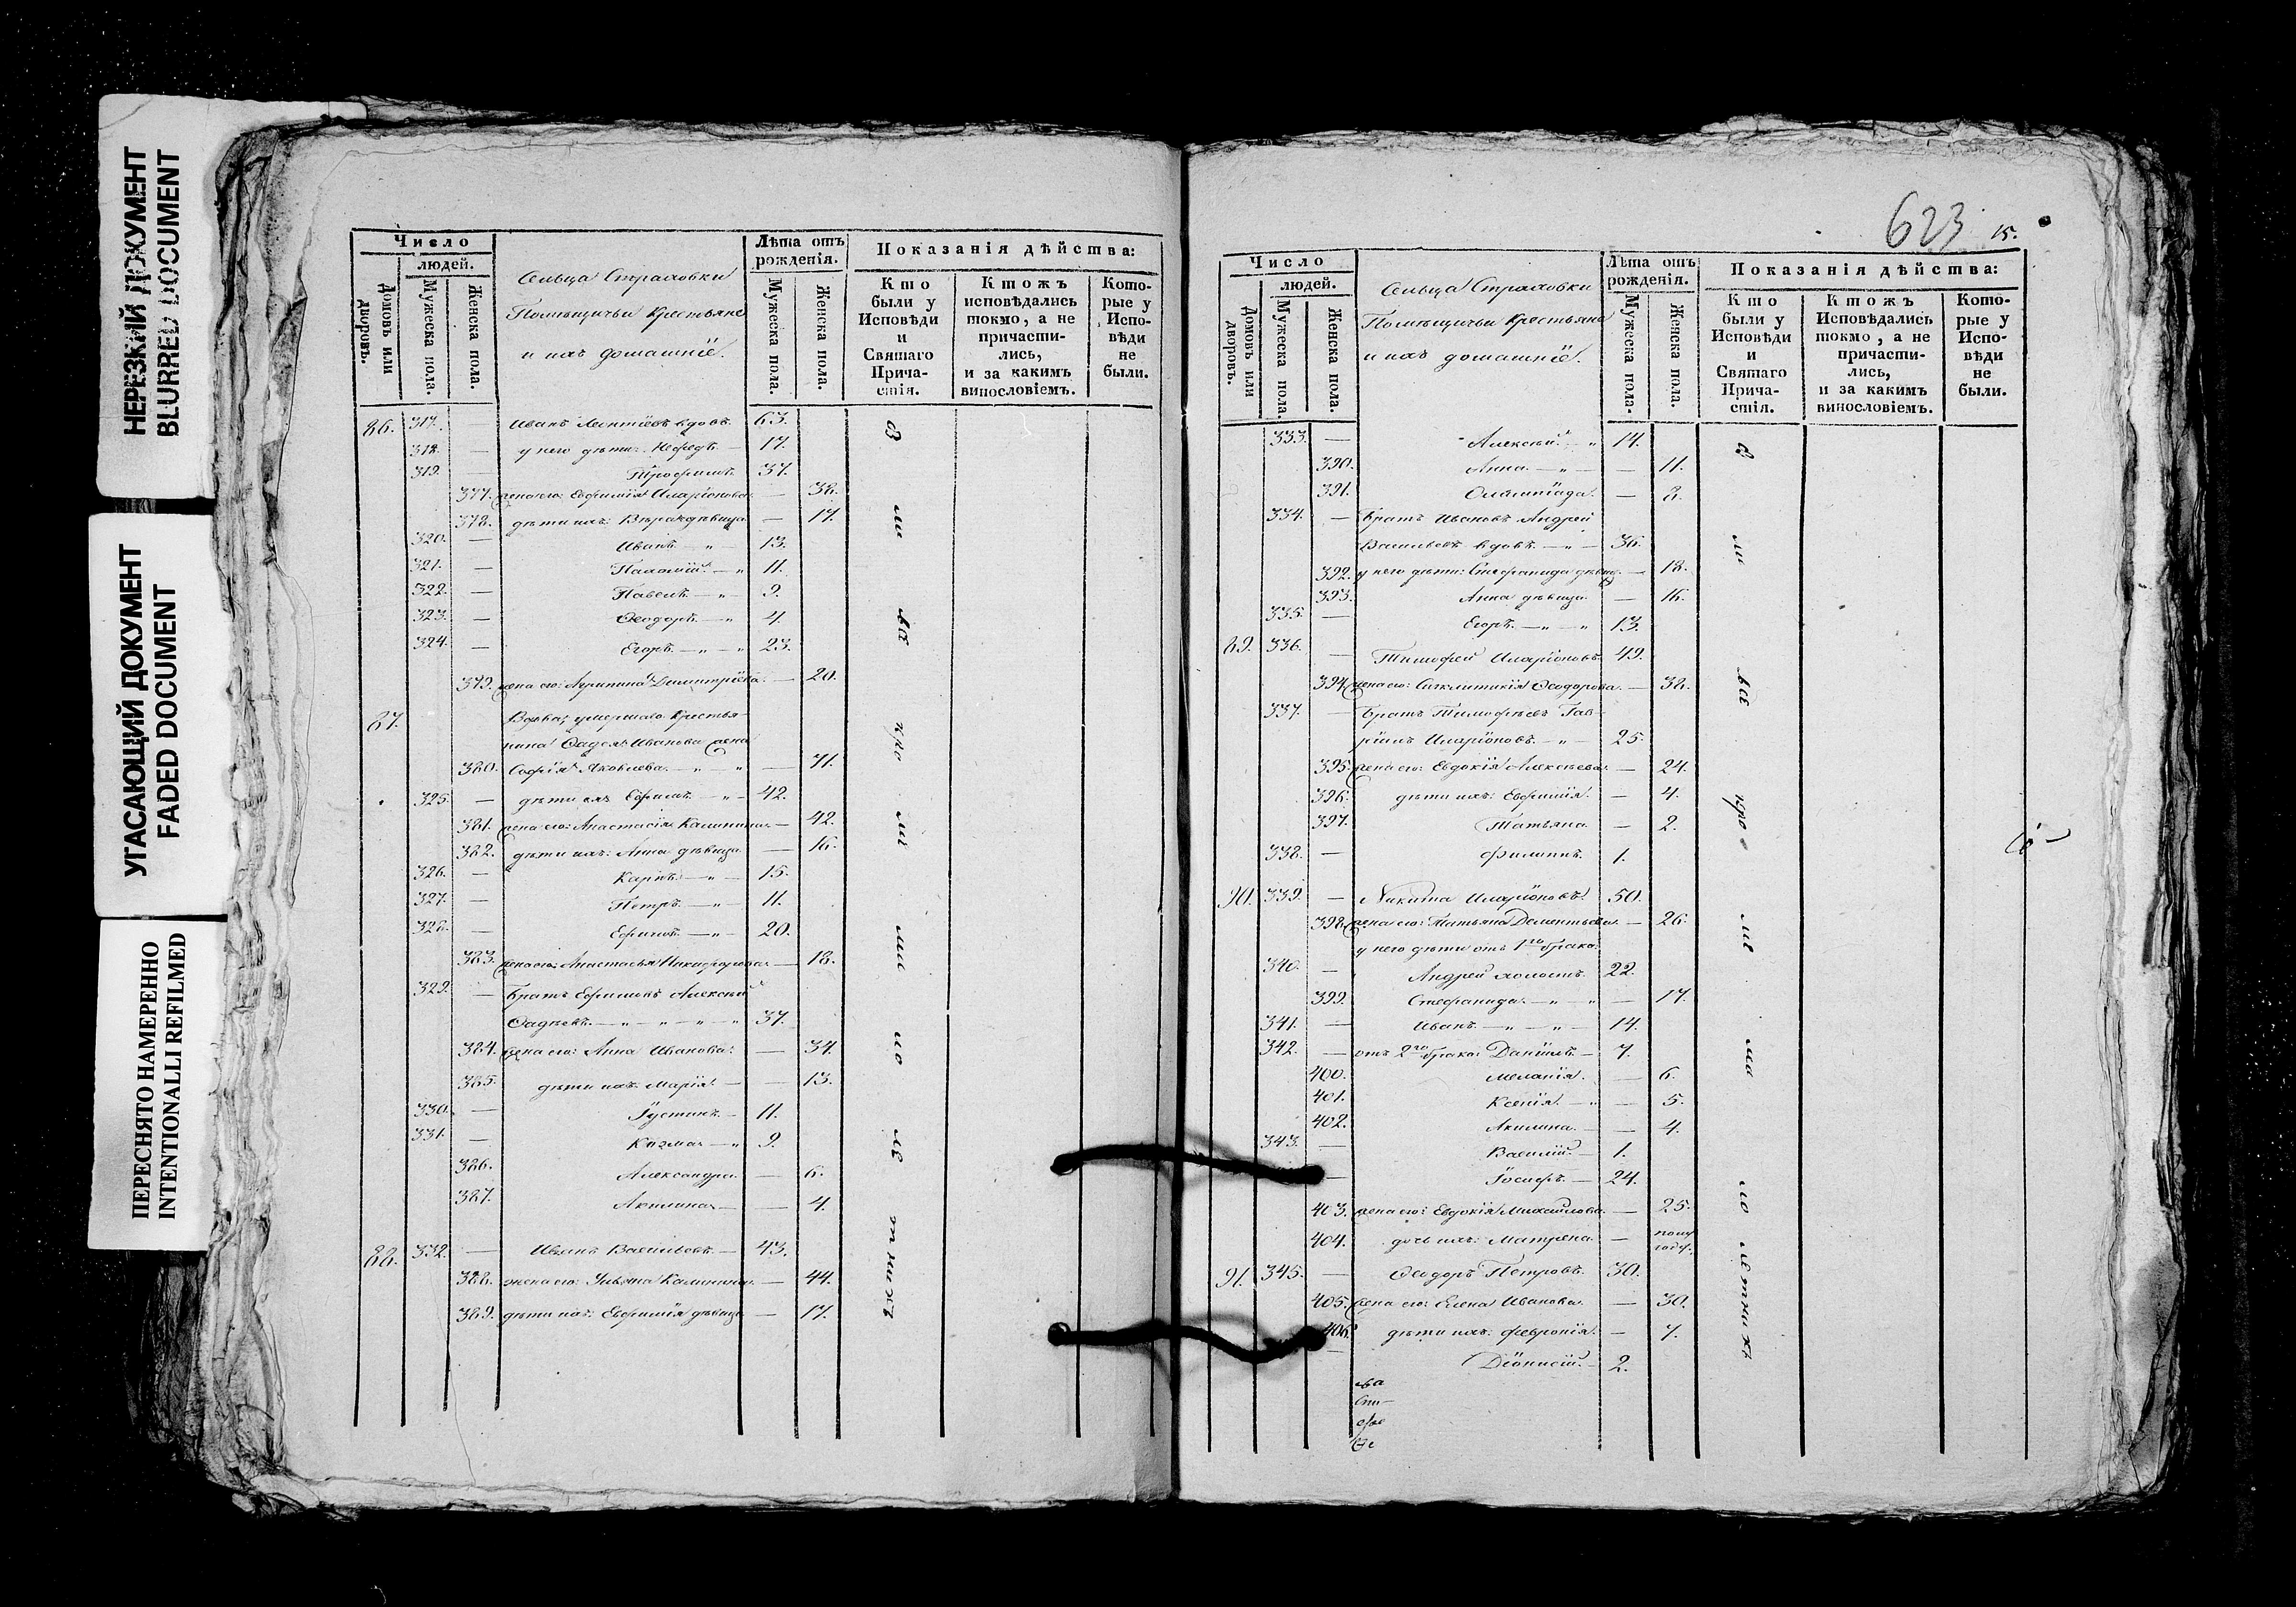 НЕРЕЗКИЙ ДОКУМЕНТ
BLURRED DOCUMENT
УГАСАЮЩИЙ ДОКУМЕНТ
FADED DOCUMENT
ПЕРЕСНЯТО НАМЕРЕННО
INTENTIONALLI REFILMED
Число
людей.
Домовъ или дворовъ.
Мужеска пола.
Женска пола.
Сельца Страховки
Помѣщичьи Крестьяне
и ихъ домашніе.
Лѣта отъ рожденія.
Мужеска пола.
Женска пола.
Показанія дѣйства:
Кто были у Исповѣди и Святаго Причастія.
Ктожъ исповѣдались токмо, а не причастились, и за какимъ винословіемъ.
Которые у Исповѣди не были.
86. 317. — Иванъ Леонтіевъ вдовъ. 63.
318. — у него дѣти: Нефедъ. — 17.
319. — Трофимъ. 37.
377. жена его: Евфимія Иларіонова. — 38.
378. дѣти ихъ: Вѣра дѣвица — 17.
320. — Иванъ. — „ — 13.
321. — Пахомій. — „ 11.
322. — Павелъ. — „ — 9.
323. — Ѳеодоръ. — „ 4.
324. — Егоръ. — „ — „ 23.
379. жена его: Агрипина Димитріева. — 20.
87. Вдова, умершаго крестья-
нина Ѳадея Иванова жена
380. Софія Яковлева. — „ — „ — 71.
325. — дѣти ея: Ефимъ. — „ — 42.
381. жена его: Анастасія Калинина — 42.
382. дѣти ихъ: Анна дѣвица — 16.
326. — Карпъ. — „ — 15.
327. — Петръ. — „ 11.
328. — Ефимъ. — „ — 20.
383. жена его: Анастасія Никифорова — 18.
329. — Братъ Ефимовъ Алексѣй
Ѳадѣевъ. — „ — „ — „ — „ 37.
384. жена его: Анна Иванова. — 34.
385. дѣти ихъ: Марія. — — 13.
330. — Іустинъ. — 11.
331. — Козма — „ 9.
386. Александра. — 6.
387. Акилина — — 4.
88. 332. — Иванъ Васильевъ. — 43.
388. жена его: Ульяна Калинина. — 44.
389. дѣти ихъ: Евфимія дѣвица — 17.
623
15.
Число
людей.
Домовъ или дворовъ.
Мужеска пола.
Женска пола.
Сельца Страховки
Помѣщичьи Крестьяне
и ихъ домашніе.
Лѣта отъ рожденія.
Мужеска пола.
Женска пола.
Показанія дѣйства:
Кто были у Исповѣди и Святаго Причастія.
Ктожъ Исповѣдались токмо, а не причастились, и за какимъ винословіемъ.
Которые у Исповѣди не были.
333. — Алексѣй. — „ 14.
390. Анна. — „ — — 11.
391. Олимпіада. — 8.
334. — Братъ Ивановъ Андрей
Васильевъ вдовъ. — „ — 36.
392. у него дѣти: Стефанида дѣвиц. — 18.
393. Анна дѣвица. — 16.
335. — Егоръ. — „ — „ — 13.
89. 336. — Тимофей Иларіоновъ. 49.
394. жена его: Сигклитикія Ѳеодорова. — 38.
337. — Братъ Тимофѣевъ Гав-
ріилъ Иларіоновъ. — „ — 25.
395. жена его: Евдокія Алексѣева. — 24.
396. дѣти ихъ: Евфимія. — 4.
397. Татьяна. — 2.
338. — Филиппъ. 1.
90. 339. — Никита Иларіоновъ. 50.
398. жена его: Татьяна Дементьева. — 26.
у него дѣти отъ 1го брака:
340. — Андрей холостъ. 22.
399. Стефанида. — „ — „ — 17.
341. — Иванъ. — „ — „ — 14.
342. — отъ 2го брака: Даніилъ. — 7.
400. Меланія. — 6.
401. Ксенія. — „ — 5.
402. Акилина. — — 4.
343. — Василій. — 1.
— Іосифъ. — 24.
403. жена его: Евдокія Михайлова. — 25.
404. дочь ихъ: Матрена. — полу года.
91. 345. — Ѳеодоръ Петровъ. 30.
405. жена его: Елена Иванова. — 30.
406. дѣти ихъ: Февронія. — 7.
— Діонисій. — 2.